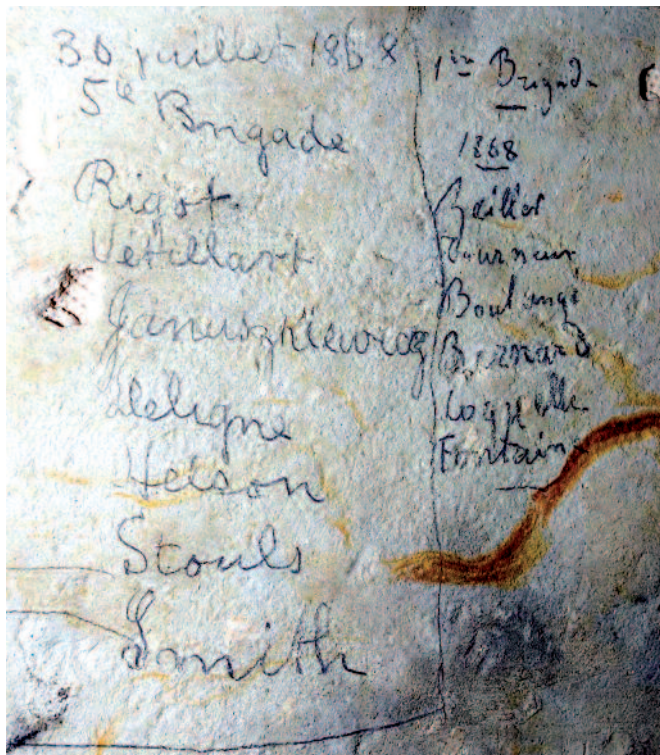 30 juillet 1868
5e Brigade
Rigot
Vétillart
Januszkiewicz
Deligne
Heison
Stouls
Smith
1re Brigade
1868
Beillier
Tourneur
Boulangé
Bernard
Coquelle
Fontaine